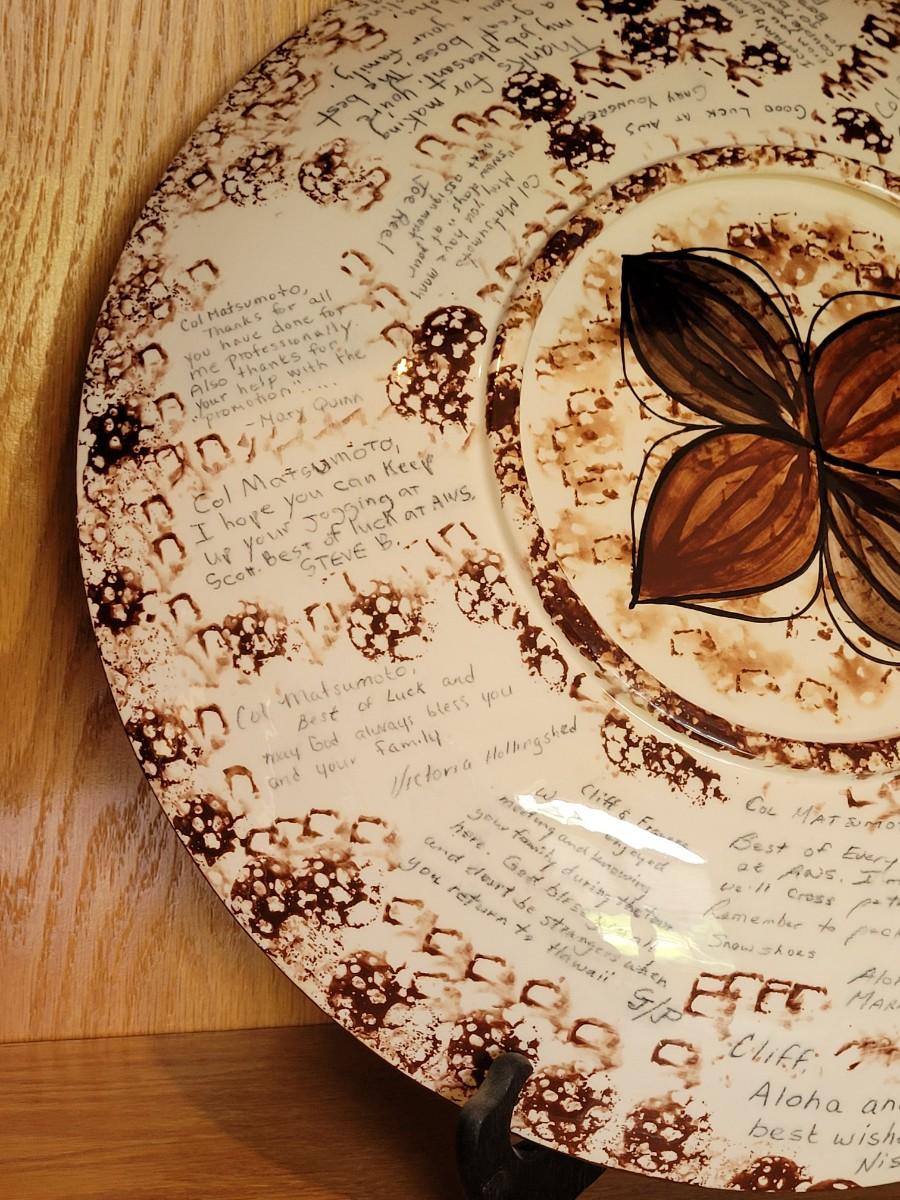 Col Matsumoto,
Thanks for all
you have done for
me professionally
Also thanks for
your help with the
"promotion".....
-Mary Quinn
Col Matsumoto,
I hope you can Keep
up your Jogging at
Scott. Best of luck at AWS.
STEVE B.
Col Matsumoto,
Best of Luck and
may God always bless you
and your family.
Victoria Hollingshed
Cliff &
enjoyed
meeting and knowing
your family during the
here. God bless
and don't be strangers when
you return to Hawaii
G/P
COL MATSUMO
Best of Every
at AWS. I
we'll cross pa
Remember to pac
Snowshoes
Alo
MAR
Cliff,
Aloha an
best wish
Nis
Col Matsumoto
May you have many
"snow days" at your
next assignment
Joe Kee!
Thanks for making
my job pleasant you're
a great boss. The best
you & your family.
GOOD LUCK AT AWS
GARY YOUNGREN